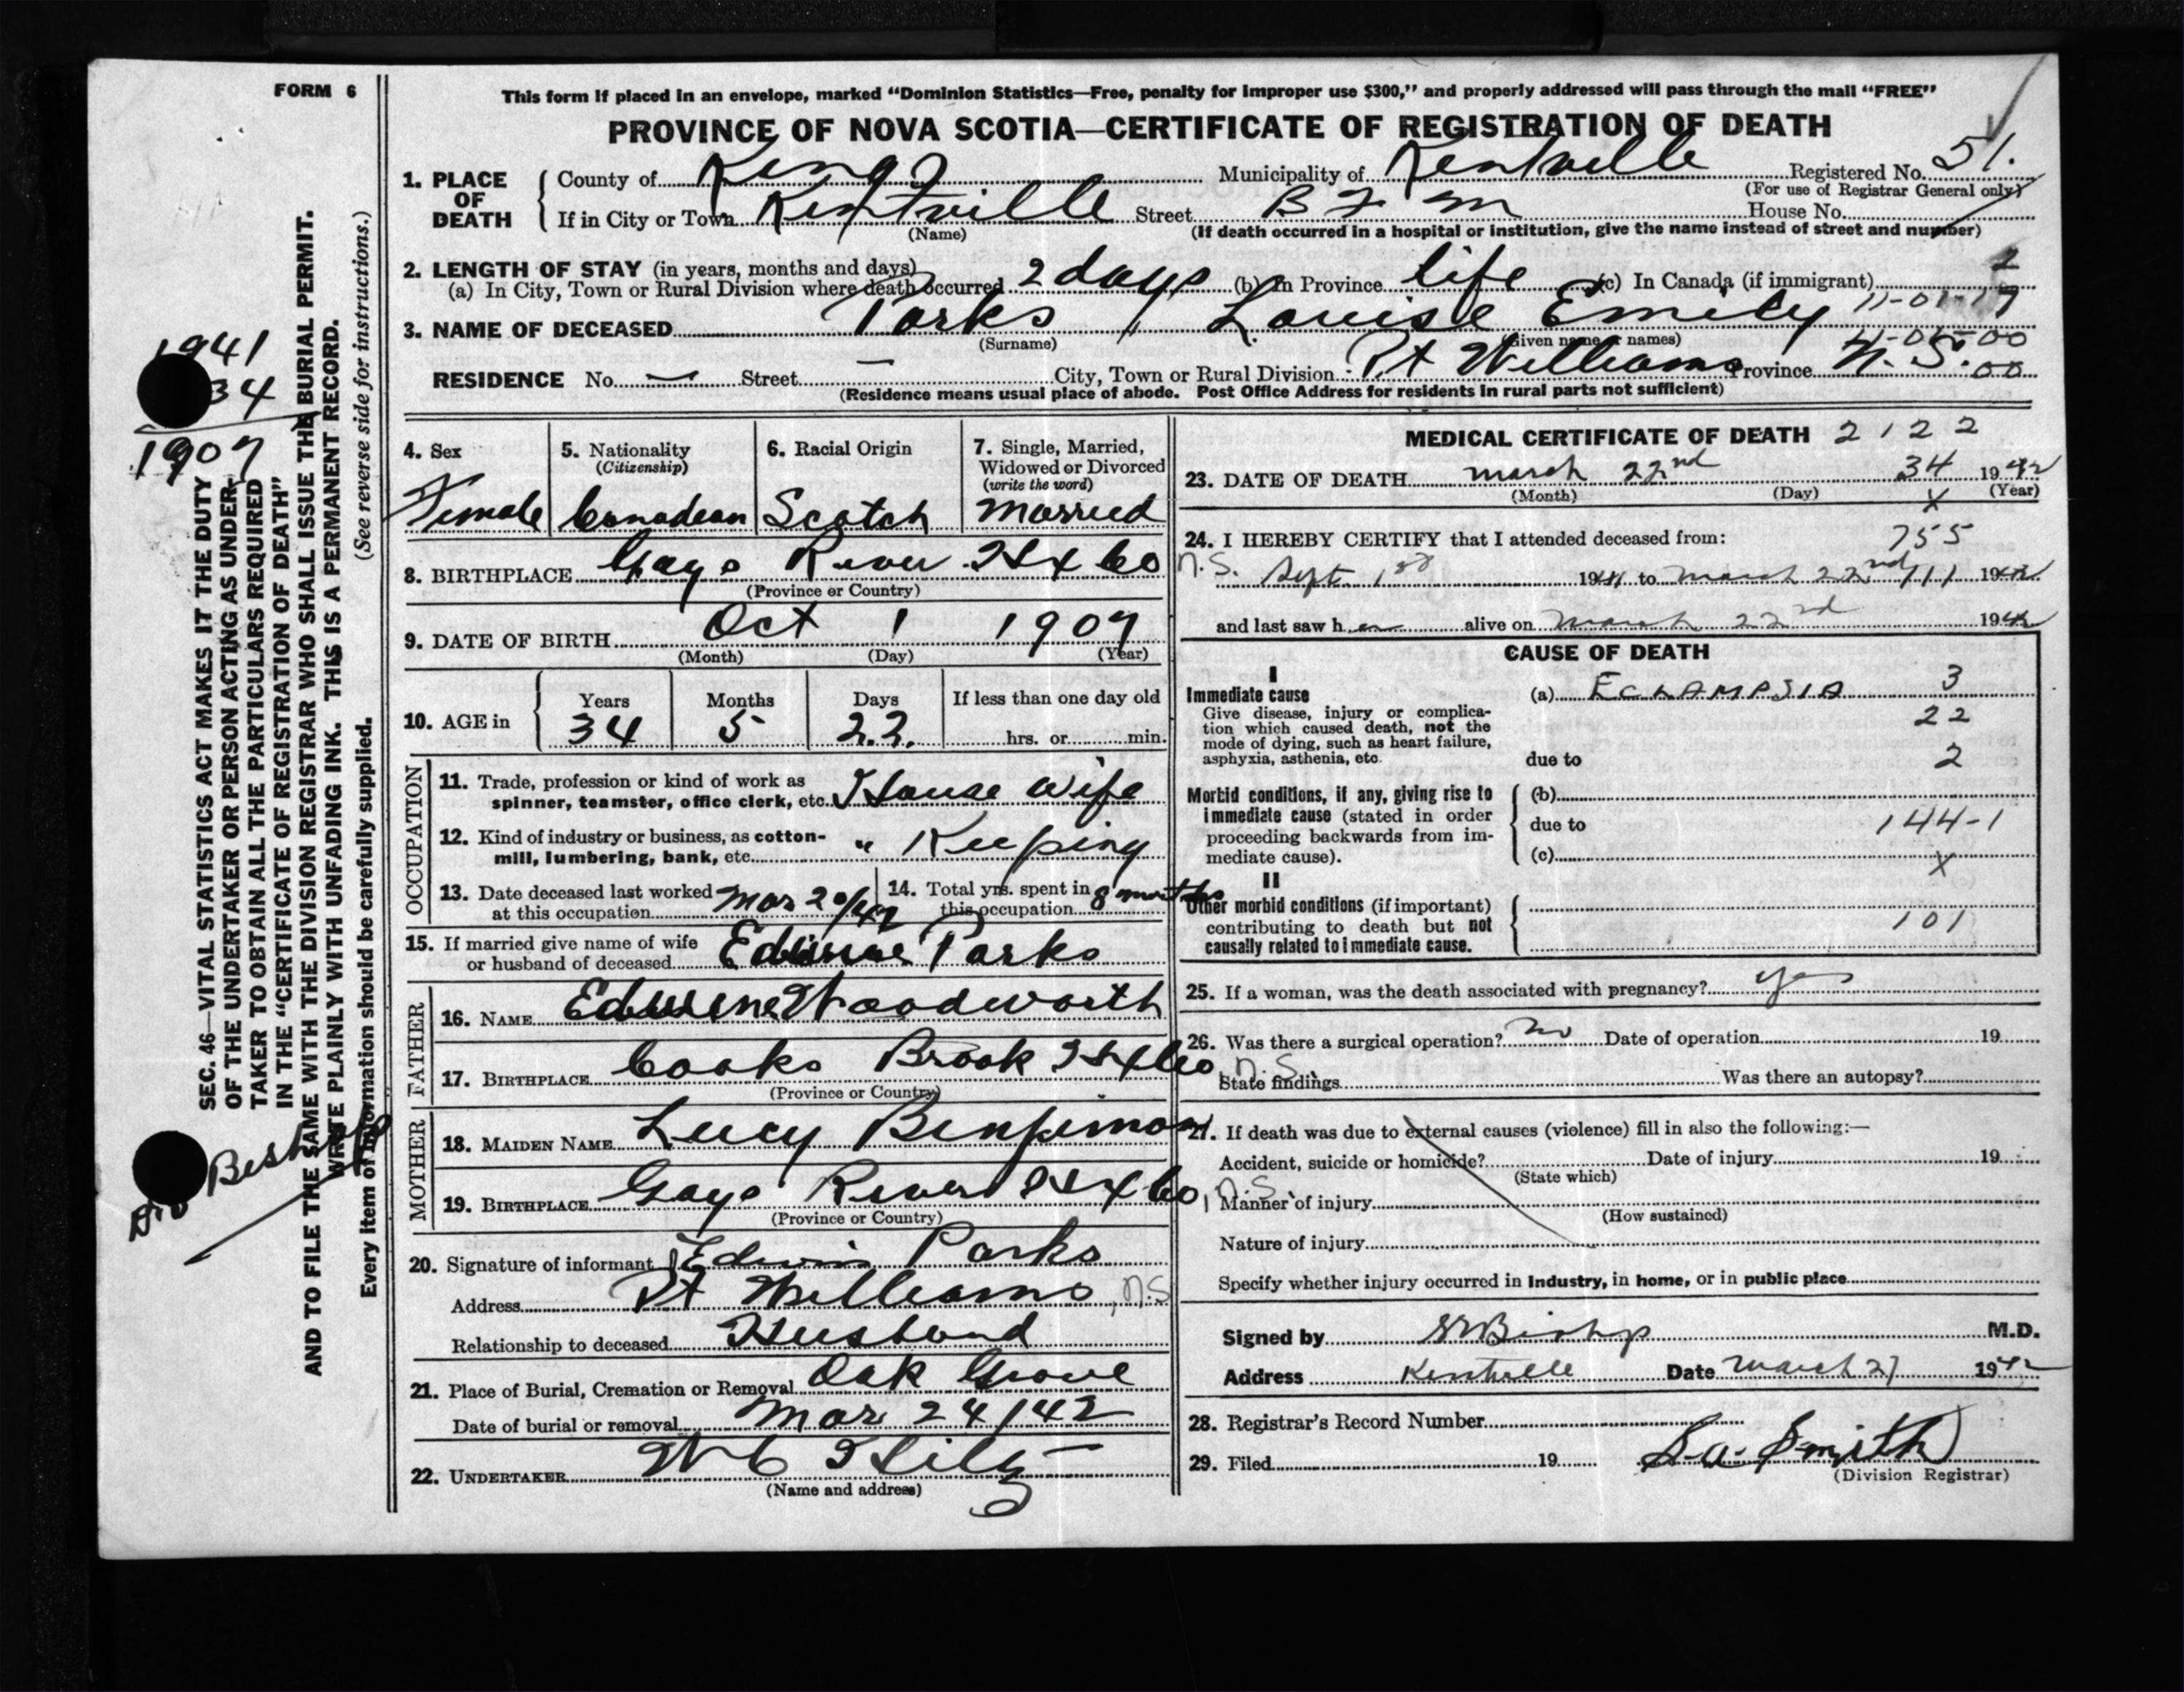 FORM 6
This form if placed in an envelope, marked “Dominion Statistics—Free, penalty for improper use $300,” and properly addressed will pass through the mail “FREE”
PROVINCE OF NOVA SCOTIA—CERTIFICATE OF REGISTRATION OF DEATH
1. PLACE OF DEATH County of Kings Municipality of Kentville Registered No. 51.
(For use of Registrar General only)
If in City or Town Kentville Street B F M House No.
(Name) (If death occurred in a hospital or institution, give the name instead of street and number)
2. LENGTH OF STAY (in years, months and days) 2
(a) In City, Town or Rural Division where death occurred 2 days (b) In Province life (c) In Canada (if immigrant)
3. NAME OF DECEASED Parks, Louise Emily
(Surname) (Given name or names)
RESIDENCE No. — Street — City, Town or Rural Division Pt Williams Province N. S. 00
(Residence means usual place of abode. Post Office Address for residents in rural parts not sufficient)
SEC. 46—VITAL STATISTICS ACT MAKES IT THE DUTY
OF THE UNDERTAKER OR PERSON ACTING AS UNDER-
TAKER TO OBTAIN ALL THE PARTICULARS REQUIRED
IN THE “CERTIFICATE OF REGISTRATION OF DEATH”
AND TO FILE THE SAME WITH THE DIVISION REGISTRAR WHO SHALL ISSUE THE BURIAL PERMIT.
WRITE PLAINLY WITH UNFADING INK. THIS IS A PERMANENT RECORD.
Every item of information should be carefully supplied. (See reverse side for instructions.)
1941
34
1907
4. Sex 5. Nationality 6. Racial Origin 7. Single, Married,
(Citizenship) Widowed or Divorced
(write the word)
Female Canadian Scotch Married
8. BIRTHPLACE Gays River Hx Co n.S.
(Province or Country)
9. DATE OF BIRTH Oct 1 1907
(Month) (Day) (Year)
10. AGE in Years Months Days If less than one day old
34 5 22. hrs. or min.
OCCUPATION
11. Trade, profession or kind of work as
spinner, teamster, office clerk, etc. House wife
12. Kind of industry or business, as cotton-
mill, lumbering, bank, etc. " Keeping
13. Date deceased last worked at this occupation Mar 20/42 14. Total yrs. spent in this occupation 8 months
15. If married give name of wife
or husband of deceased Parks
FATHER
16. NAME Woodworth
17. BIRTHPLACE Cooks Brook Hx Co, n.S.
(Province or Country)
MOTHER
18. MAIDEN NAME Lucy
19. BIRTHPLACE Gays River Hx Co, n.S.
(Province or Country)
20. Signature of informant Edwin Parks
Address Pt Williams, n.S
Relationship to deceased Husband
21. Place of Burial, Cremation or Removal Oak Grove
Date of burial or removal Mar 24/42
22. UNDERTAKER
(Name and address)
MEDICAL CERTIFICATE OF DEATH 2122
23. DATE OF DEATH March 22nd 34 1942
(Month) (Day) (Year)
X
24. I HEREBY CERTIFY that I attended deceased from: 755
Sept 1st 1941 to March 22nd 111 1942
and last saw her alive on March 22nd 1942
CAUSE OF DEATH
I
Immediate cause (a) ECLAMPSIA 3
Give disease, injury or complica-
tion which caused death, not the 22
mode of dying, such as heart failure,
asphyxia, asthenia, etc. due to 2
Morbid conditions, if any, giving rise to (b)
immediate cause (stated in order due to 144-1
proceeding backwards from im-
mediate cause). (c) X
II
Other morbid conditions (if important)
contributing to death but not 101
causally related to immediate cause.
25. If a woman, was the death associated with pregnancy? yes
26. Was there a surgical operation? no Date of operation 19
State findings Was there an autopsy?
27. If death was due to external causes (violence) fill in also the following:—
Accident, suicide or homicide? Date of injury 19
(State which)
Manner of injury
(How sustained)
Nature of injury
Specify whether injury occurred in industry, in home, or in public place
Signed by Bishop M.D.
Address Kentville Date March 27 1942
28. Registrar's Record Number
29. Filed 19 Smith
(Division Registrar)